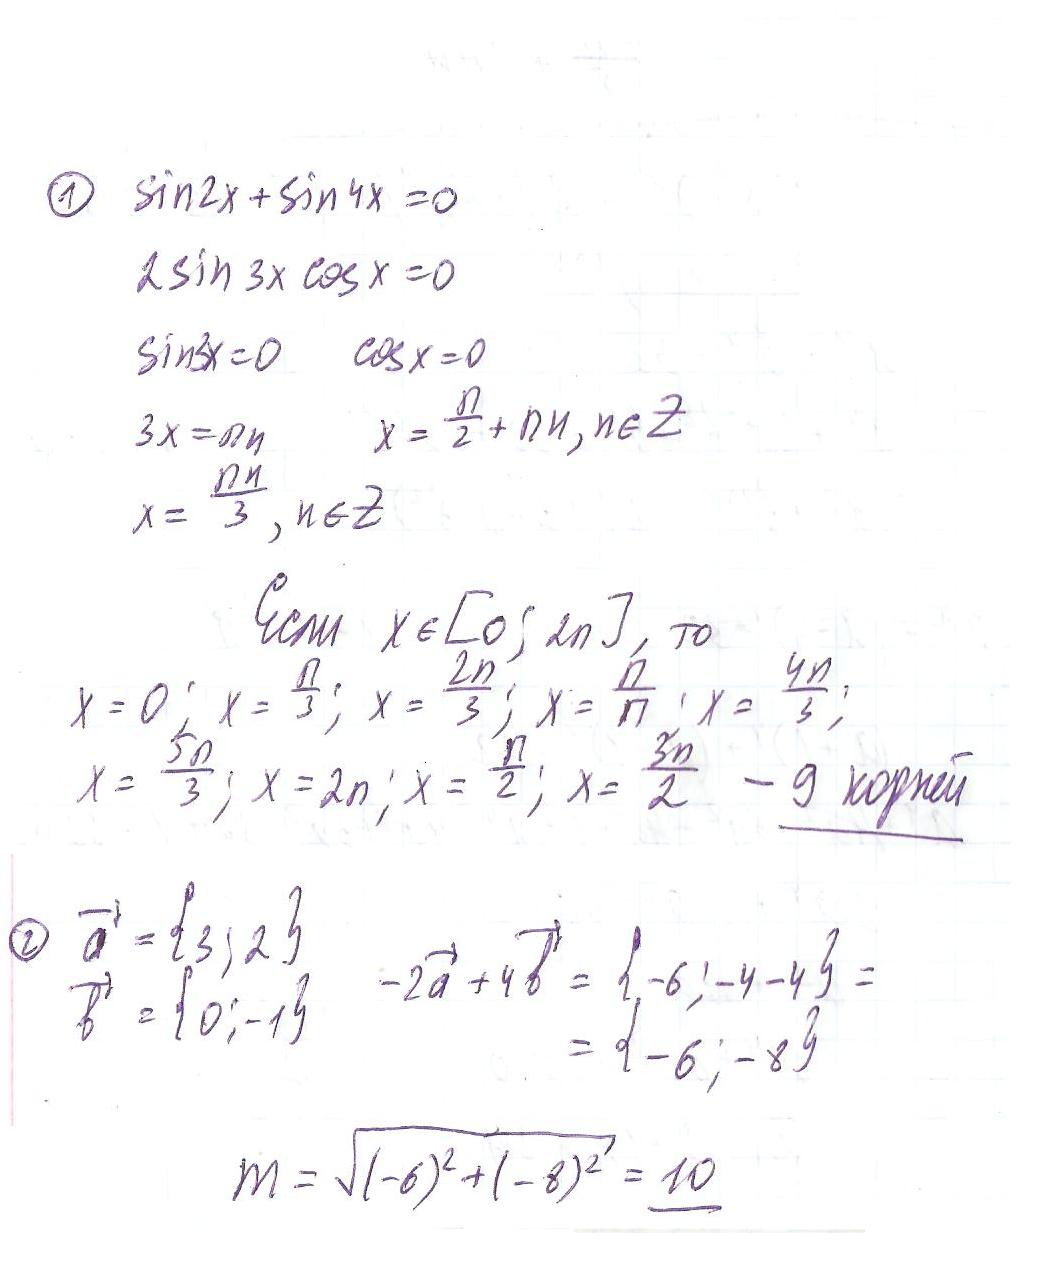 ① sin2x + sin4x = 0
2 sin 3x cos x = 0
sin3x = 0 cos x = 0
3x = πn x = π/2 + πn, n ∈ Z
x = πn/3, n ∈ Z
Если x ∈ [0; 2π], то
x = 0; x = π/3; x = 2π/3; x = π/π; x = 4π/3;
x = 5π/3; x = 2π; x = π/2; x = 3π/2 – 9 корней
② a⃗ = {3; 2}
b⃗ = {0; -1} -2a⃗ + 4b⃗ = {-6; -4-4} =
= {-6; -8}
m = √((-6)² + (-8)²) = 10